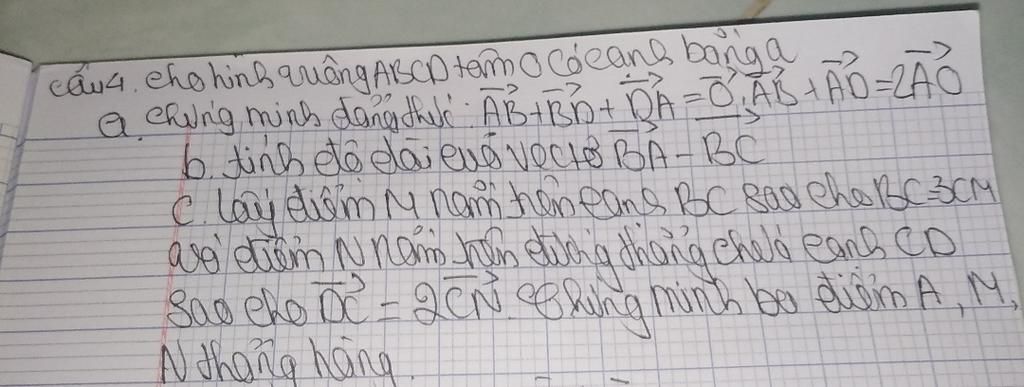 câu 4. cho hình vuông ABCD tâm O có cạnh bằng a
a. chứng minh đẳng thức: AB→ + BD→ + DA→ = 0→, AB→ + AD→ = 2AO→
b. tính độ dài của vectơ BA→ - BC→
c. lấy điểm M nằm trên cạnh BC sao cho BC=3CM
và điểm N nằm trên đường thẳng chứa cạnh CD
sao cho DC→ = 2CN→. chứng minh ba điểm A, M,
N thẳng hàng.